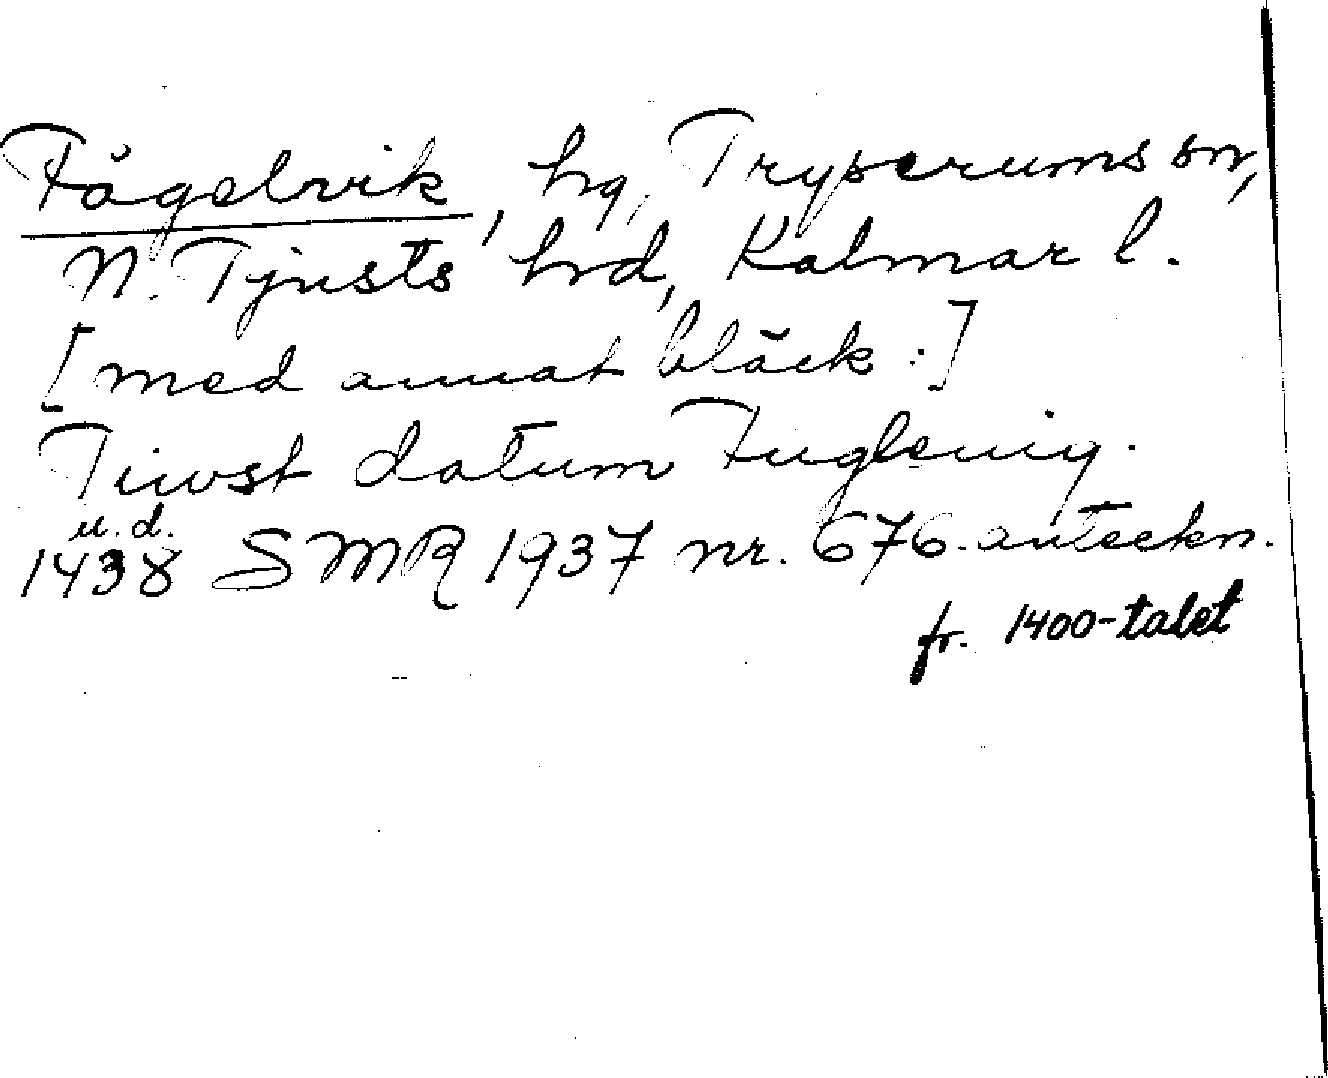 Fågelvik, hg, Tryserums sn,
N. Tjusts hrd, Kalmar l.
[med annat bläck:]
Tiwst datum Fuglewig.
u. d.
1438 SMR 1937 nr. 676. anteckn.
fr. 1400-talet